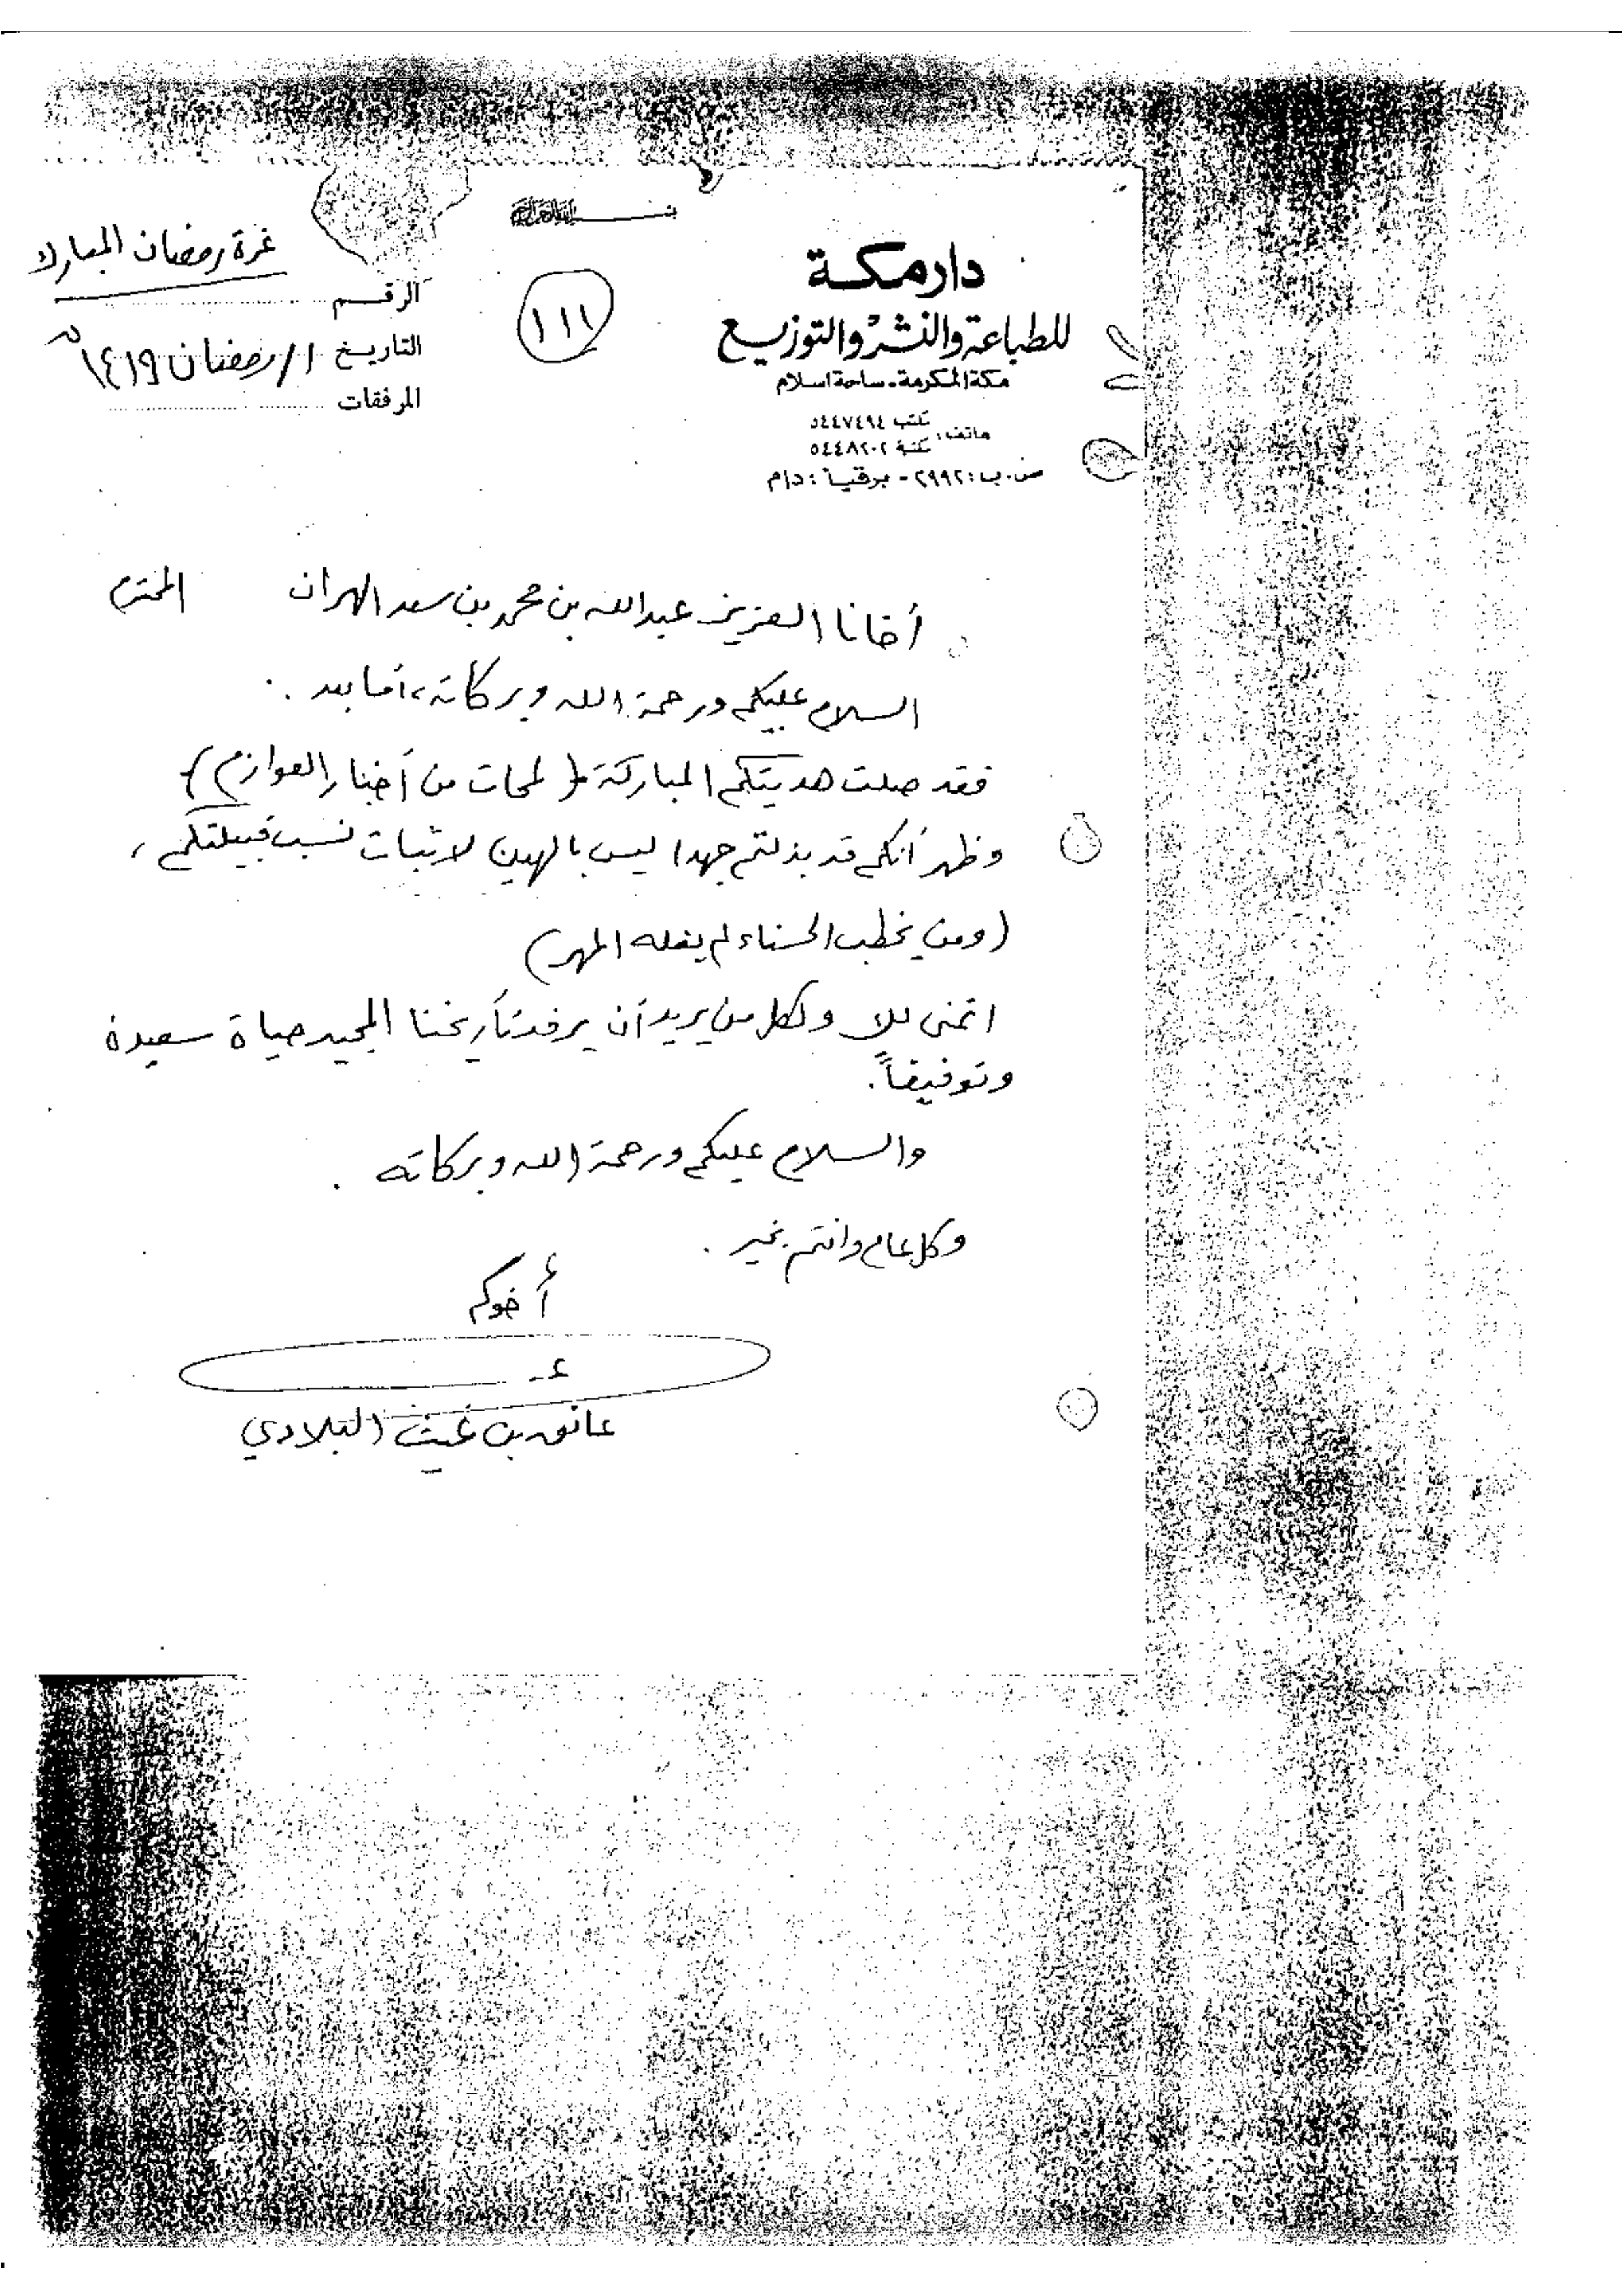 بسم الله الرحمن الرحيم
دار مكة
للطباعة والنشر والتوزيع
مكة المكرمة - ساحة اسلام
هاتف: مكتب ٥٤٤٧٤٩٤
٥٤٤٨٢٠٢
ص.ب: ٢٩٩٢ - برقياً: دام
١١١
غرة رمضان المبارك
الرقم
التاريخ ١/رمضان ١٤١٩
المرفقات
أخانا العزيز عبدالله بن محمد بن سعد المحترم
السلام عليكم ورحمة الله وبركاته، أما بعد ..
فقد صلت هديتكم المباركة { لمحات من أخبار العوازم }
وظهر أنكم قد بذلتم جهدا ليس بالهين لاثبات نسب قبيلتكم،
(ومن يخطب الحسناء لم يغله المهر)
اتمنى لك ولكل من يريد أن يرفد تأريخنا المجيد حياة سعيدة
وتوفيقاً.
والسلام عليكم ورحمة الله وبركاته .
وكل عام وانتم بخير .
أخوكم
عاتق بن غيث البلادي